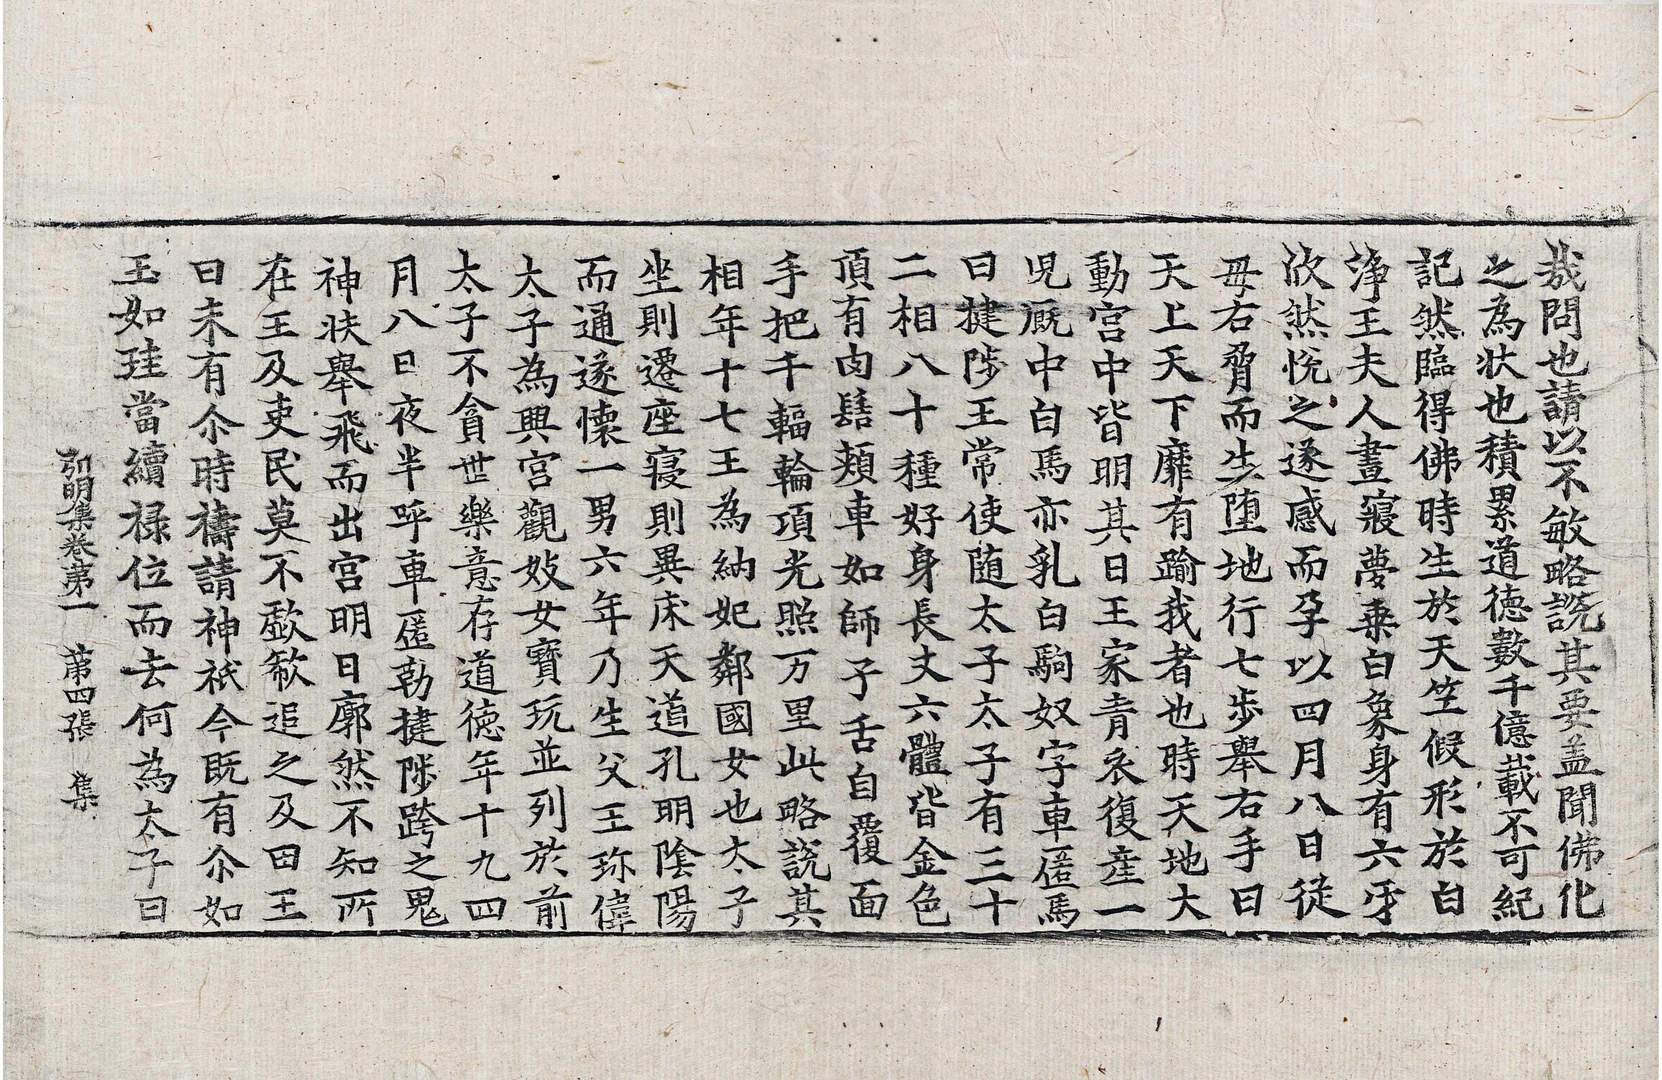 哉問也請以不敏略說其要盖聞佛化
之為狀也積累道德數千億載不可紀
記然臨得佛時生於天竺假形於白
淨王夫人晝寢夢乗白象身有六牙
欣然悅之遂感而孕以四月八日従
母右脅而生墮地行七步舉右手曰
天上天下靡有踰我者也時天地大
動宮中皆明其日王家青衣復産一
兒厩中白馬亦乳白駒奴字車匿馬
曰揵陟王常使随太子太子有三十
二相八十種好身長丈六體皆金色
頂有肉髻頰車如師子舌自覆面
手把千輻輪項光照万里此略說其
相年十七王為納妃鄰國女也太子
坐則遷座寢則異床天道孔明陰陽
而通遂懷一男六年乃生父王珎偉
太子為興宮觀妓女寶玩並列於前
太子不貪世樂意存道德年十九四
月八日夜半呼車匿勒揵陟跨之鬼
神扶舉飛而出宮明日廓然不知所
在王及吏民莫不歔欷追之及田王
曰未有尒時禱請神祇今既有尒如
玉如珪當續禄位而去何為太子曰
弘明集卷第一 第四張 集